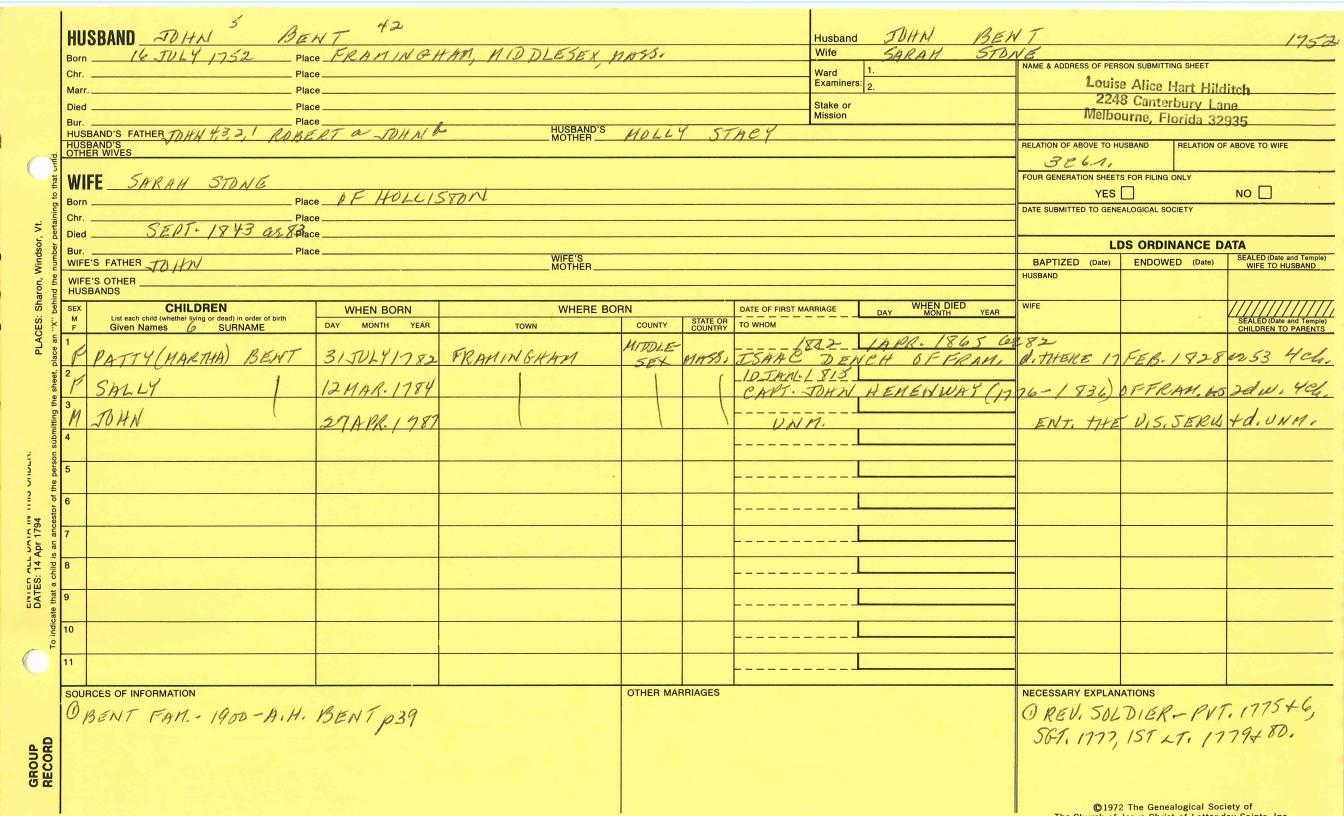 HUSBAND JOHN 5 BENT 42
Born 16 JULY 1752 Place FRAMINGHAM, MIDDLESEX, MASS.
Chr. Place
Marr. Place
Died Place
Bur. Place
HUSBAND'S FATHER JOHN 4,3,2,1 ROBERT a JOHN b HUSBAND'S MOTHER MOLLY STACY
HUSBAND'S OTHER WIVES
Husband JOHN BENT 1752
Wife SARAH STONE
Ward Examiners: 1.
2.
Stake or Mission
NAME & ADDRESS OF PERSON SUBMITTING SHEET
Louise Alice Hart Hilditch
2248 Canterbury Lane
Melbourne, Florida 32935
RELATION OF ABOVE TO HUSBAND RELATION OF ABOVE TO WIFE
3C6r.
FOUR GENERATION SHEETS FOR FILING ONLY
YES NO
DATE SUBMITTED TO GENEALOGICAL SOCIETY
WIFE SARAH STONE
Born Place OF HOLLISTON
Chr. Place
Died SEPT. 1843 as 83 Place
Bur. Place
WIFE'S FATHER JOHN WIFE'S MOTHER
WIFE'S OTHER HUSBANDS
LDS ORDINANCE DATA
BAPTIZED (Date) ENDOWED (Date) SEALED (Date and Temple) WIFE TO HUSBAND
HUSBAND
WIFE
SEALED (Date and Temple) CHILDREN TO PARENTS
SEX M F CHILDREN WHEN BORN WHERE BORN DATE OF FIRST MARRIAGE WHEN DIED
List each child (whether living or dead) in order of birth
Given Names 6 SURNAME DAY MONTH YEAR TOWN COUNTY STATE OR COUNTRY TO WHOM DAY MONTH YEAR
1 F PATTY (MARTHA) BENT 31 JULY 1782 FRAMINGHAM MIDDLESEX MASS. 1812 1 APR. 1865 as 82
ISAAC DENCH OF FRAM. d. THERE 17 FEB. 1828 as 53 4 ch.
2 F SALLY 12 MAR. 1784 10 JAN. 1815
CAPT. JOHN HEMENWAY (1776-1836) OF FRAM. as 2d w. 4 ch.
3 M JOHN 27 APR. 1787 UNM. ENT. THE U.S. SERV. + d. UNM.
4
5
6
7
8
9
10
11
SOURCES OF INFORMATION
① BENT FAM. - 1900 - A.H. BENT p39
OTHER MARRIAGES
NECESSARY EXPLANATIONS
① REV. SOLDIER - PVT. 1775 + 6,
SGT. 1777, 1ST LT. 1779 + 80.
©1972 The Genealogical Society of
The Church of Jesus Christ of Latter-day Saints, Inc.
PLACES: Sharon, Windsor, Vt.
ENTER ALL DATA IN THIS ORDER:
DATES: 14 Apr 1794
To indicate that a child is an ancestor of the person submitting the sheet, place an "X" behind the number pertaining to that child.
GROUP RECORD